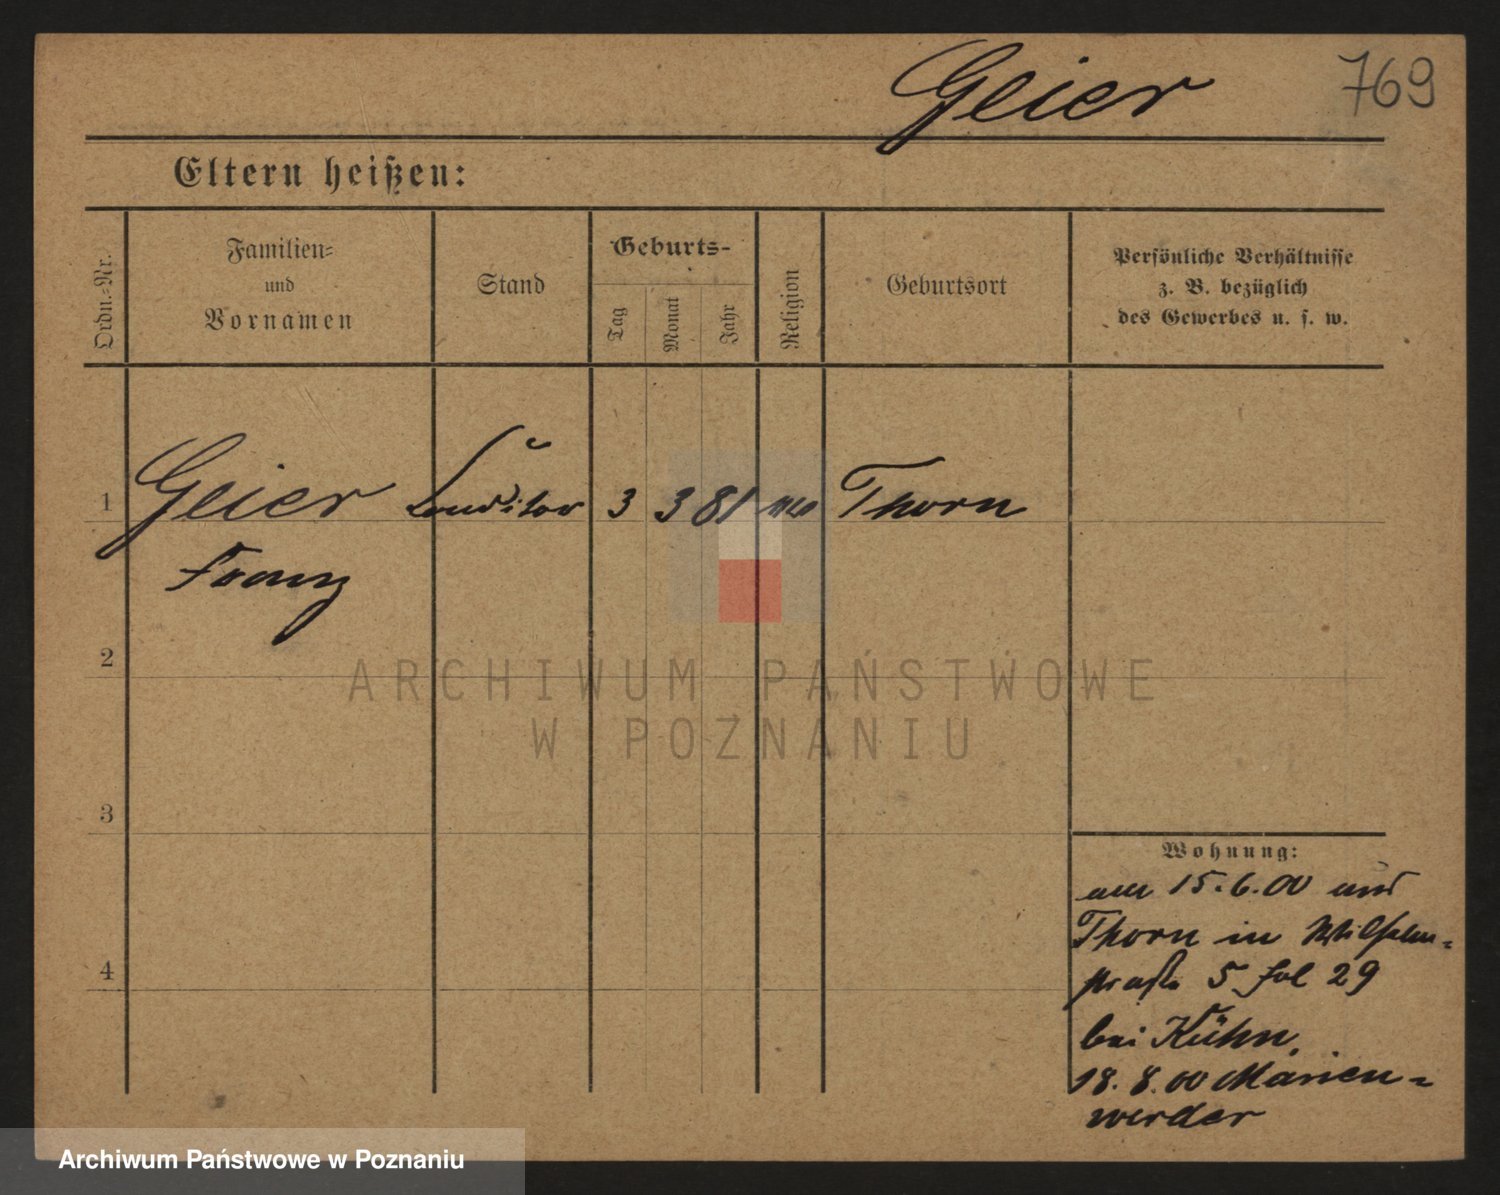 Geier
769
Eltern heißen:
Ordn.-Nr.
Familien-
und
Vornamen
Stand
Geburts-
Tag
Monat
Jahr
Religion
Geburtsort
Persönliche Verhältnisse
z. B. bezüglich
des Gewerbes u. s. w.
1
Geier Conditor 3 3 81 Thorn
Franz
2
ARCHIWUM PAŃSTWOWE
W POZNANIU
3
Wohnung:
am 15.6.00 aus
Thorn in Wilhelm-
straße 5 fol 29
4
bei Kühn,
18.8.00 Marien-
werder
Archiwum Państwowe w Poznaniu